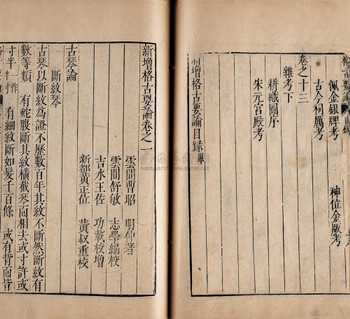 佩金銀牌考
古今初屬考
神位金匱考
卷之十三
雜考下
耕織圖序
宋元宮殿考
新增格古要論目錄畢
新增格古要論卷之一
雲間曹昭 明仲著
雲間舒敏 志學編校
吉水王佐 功載校增
新都黃正位 黃叔重校
古琴論
斷紋琴
古琴以斷紋為證不歷數百年其紋不斷然斷紋有
數等有蛇腹斷其紋橫截琴面相去或寸許或
寸半
有細紋斷如髮千百條 或有背面皆